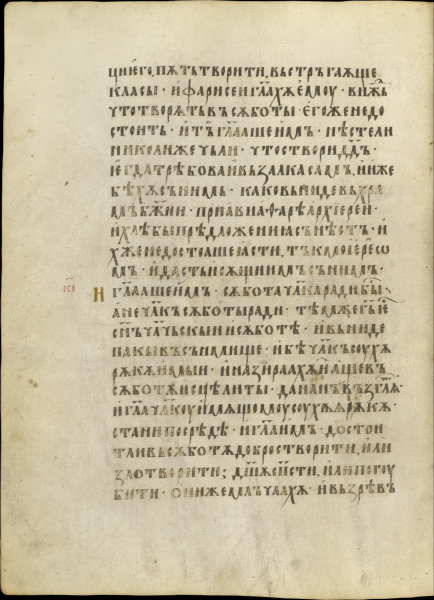 ци его пѫть творити въстръгаѫще
класы · и фарисеи гл҃ахѫ емоу · виждь
что творѧть въ сѫботы · егоже недо
стоить · и тъ гл҃аше имъ · нѣсте ли
николиже чьли · что створи дв҃дъ
егда трѣбова и възалка самъ и иже
бѣхѫ съ нимь · како въниде въ хра
мъ бж҃ии · при авиаѳарѣ архиереи ·
и хлѣбы прѣдложениа сънѣстъ · и
хже не достоаше ѣсти · тъкмо иерео
мъ · и дасть и сѫщиимъ съ нимъ ·
кв И гл҃аше имъ · сѫбота чл҃ка ради бы
а не чл҃къ сѫботы ради · тѣмже гь естъ
сн҃ъ чл҃чьскыи и сѫботѣ · и въниде
пакы въ сънмище · и бѣ чл҃къ соухѫ
рѫкѫ имыи · и назираахѫ и аще въ
сѫботѫ исцѣлить и · да на нь възгл҃ѧ ·
и гл҃а чл҃коу имѫщюмоу соухѫѫ рѫкѫ ·
стани посрѣдѣ · и гл҃а имъ · достои
тъ ли въ сѫботѫ добро створити или
зло творити; дш҃ѫ сп҃сти, или погоу
бити · они же млъчаахѫ · и възрѣвъ